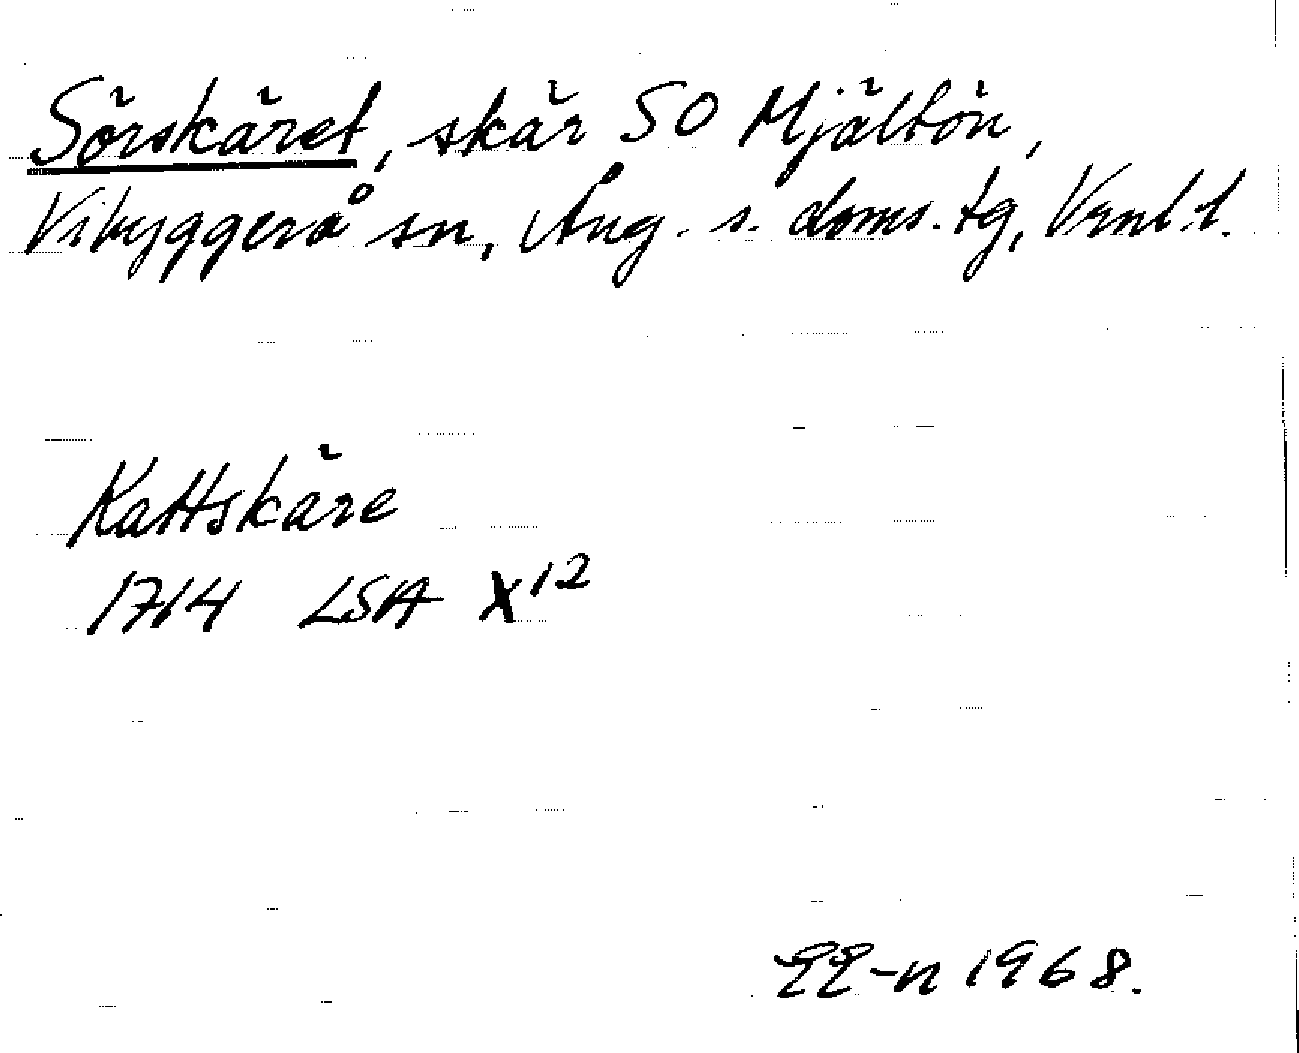 Sörskäret, skär SO Mjältön,
Vibyggerå sn, Ång. s. doms. tg, Vrnl. l.
Kattskäre
1714 LSA X12
EE-n 1968.